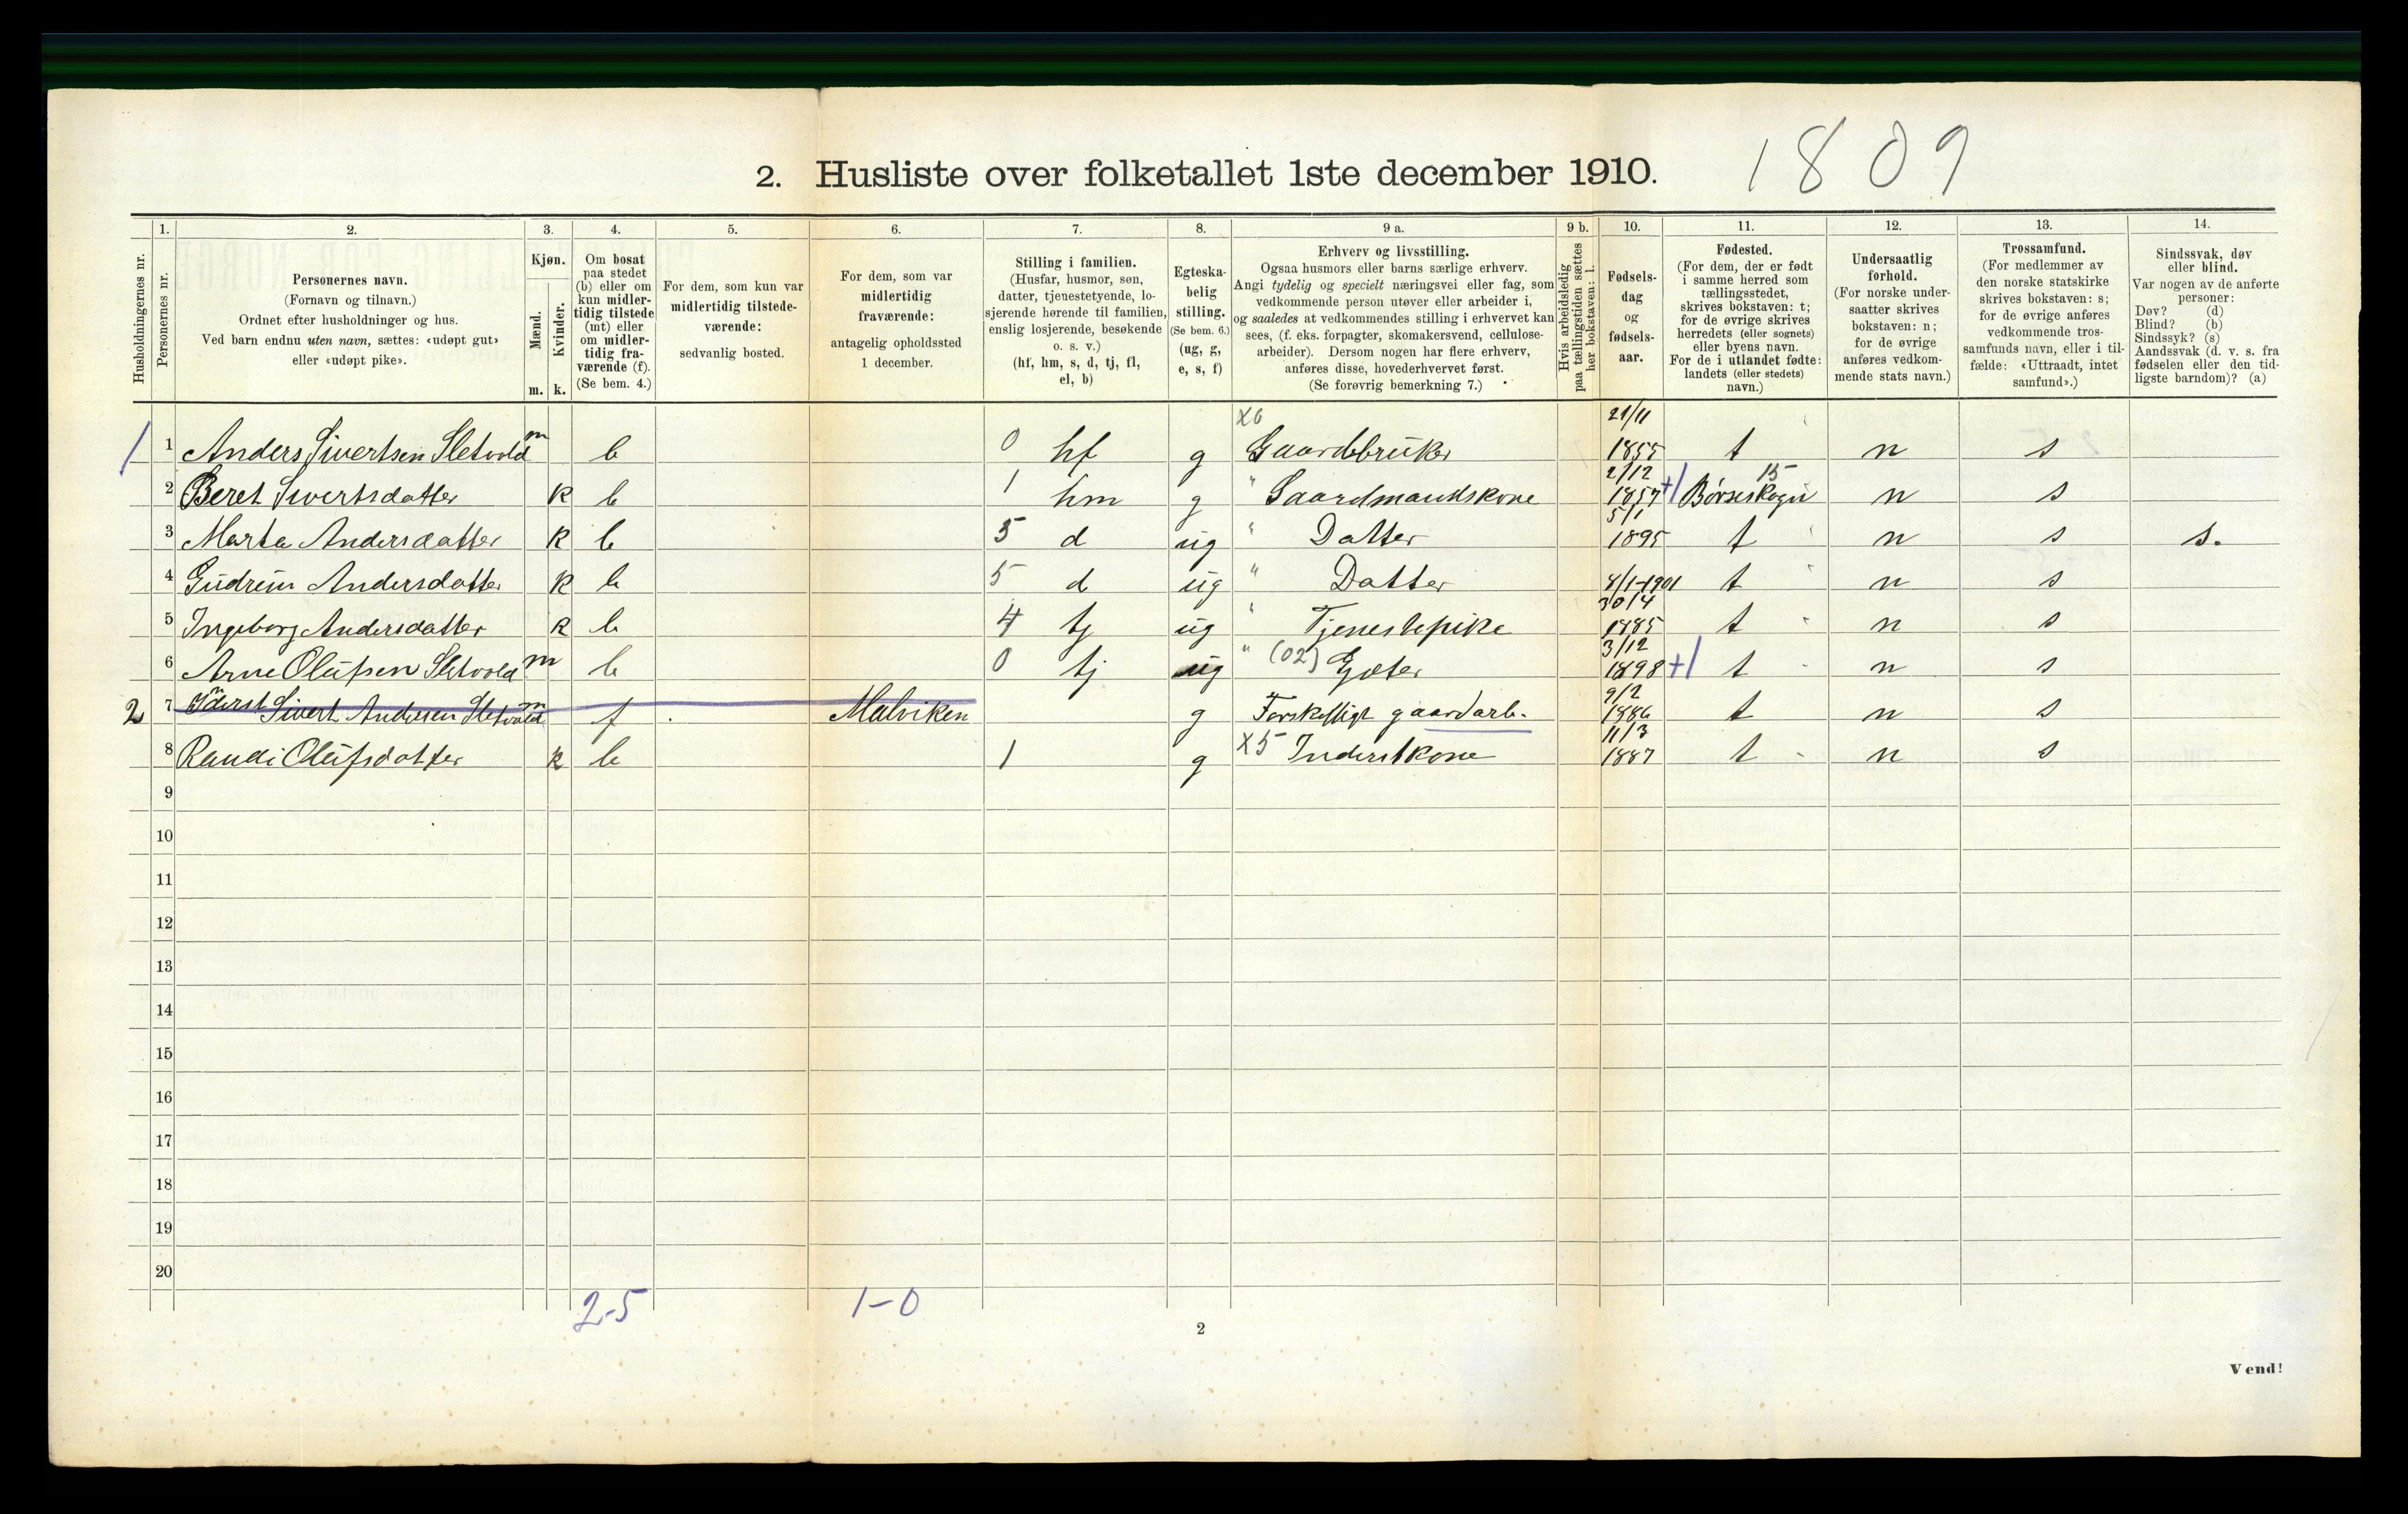 1809
2. Husliste over folketallet 1ste december 1910.
Husholdningernes nr.
1. Personernes nr.
2. Personernes navn. (Fornavn og tilnavn.) Ordnet efter husholdninger og hus. Ved barn endnu uten navn, sættes: «udøpt gut» eller «udøpt pike».
3. Kjøn. Mænd. m. Kvinder. k.
4. Om bosat paa stedet (b) eller om kun midlertidig tilstede (mt) eller om midlertidig fraværende (f). (Se bem. 4.)
5. For dem, som kun var midlertidig tilstedeværende: sedvanlig bosted.
6. For dem, som var midlertidig fraværende: antagelig opholdssted 1 december.
7. Stilling i familien. (Husfar, husmor, søn, datter, tjenestetyende, losjerende hørende til familien, enslig losjerende, besøkende o. s. v.) (hf, hm, s, d, tj, fl, el, b)
8. Egteskabelig stilling. (Se bem. 6.) (ug, g, e, s, f)
9 a. Erhverv og livsstilling. Ogsaa husmors eller barns særlige erhverv. Angi tydelig og specielt næringsvei eller fag, som vedkommende person utøver eller arbeider i, og saaledes at vedkommendes stilling i erhvervet kan sees, (f. eks. forpagter, skomakersvend, cellulosearbeider). Dersom nogen har flere erhverv, anføres disse, hovederhvervet først. (Se forøvrig bemerkning 7.)
9 b. Hvis arbeidsledig paa tællingstiden sættes her bokstaven: l.
10. Fødselsdag og fødselsaar.
11. Fødested. (For dem, der er født i samme herred som tællingsstedet, skrives bokstaven: t; for de øvrige skrives herredets (eller sognets) eller byens navn. For de i utlandet fødte: landets (eller stedets) navn.)
12. Undersaatlig forhold. (For norske undersaatter skrives bokstaven: n; for de øvrige anføres vedkommende stats navn.)
13. Trossamfund. (For medlemmer av den norske statskirke skrives bokstaven: s; for de øvrige anføres vedkommende trossamfunds navn, eller i tilfælde: «Uttraadt, intet samfund».)
14. Sindssvak, døv eller blind. Var nogen av de anførte personer: Døv? (d) Blind? (b) Sindssyk? (s) Aandssvak (d. v. s. fra fødselen eller den tidligste barndom)? (a)
1 1 Anders Sivertsen Sletvold m b 0 hf g X6 Gaardbruker 21/11 1855 t n s
2 Beret Sivertsdatter k b 1 hm g " Gaardmandskone 2/12 1857 +1 Børseskogn 15 n s
3 Marta Andersdatter k b 5 d ug " Datter 5/1 1895 t n s s.
4 Gudrun Andersdatter k b 5 d ug " Datter 8/1-1901 t n s
5 Ingeborg Andersdatter k b 4 tj ug " Tjenestepike 30/4 1885 t n s
6 Arne Olufsen Sletvold m b 0 tj ug " (02) Gjæter 3/12 1898 +1 t n s
2 7 Inderst Sivert Andersen Sletvold m f Malviken g Forskelligt gaardarb. 9/2 1886 t n s
8 Randi Olufsdatter k b 1 g X5 Inderstkone 11/3 1887 t n s
9
10
11
12
13
14
15
16
17
18
19
20
2-5 1-0
2
Vend!